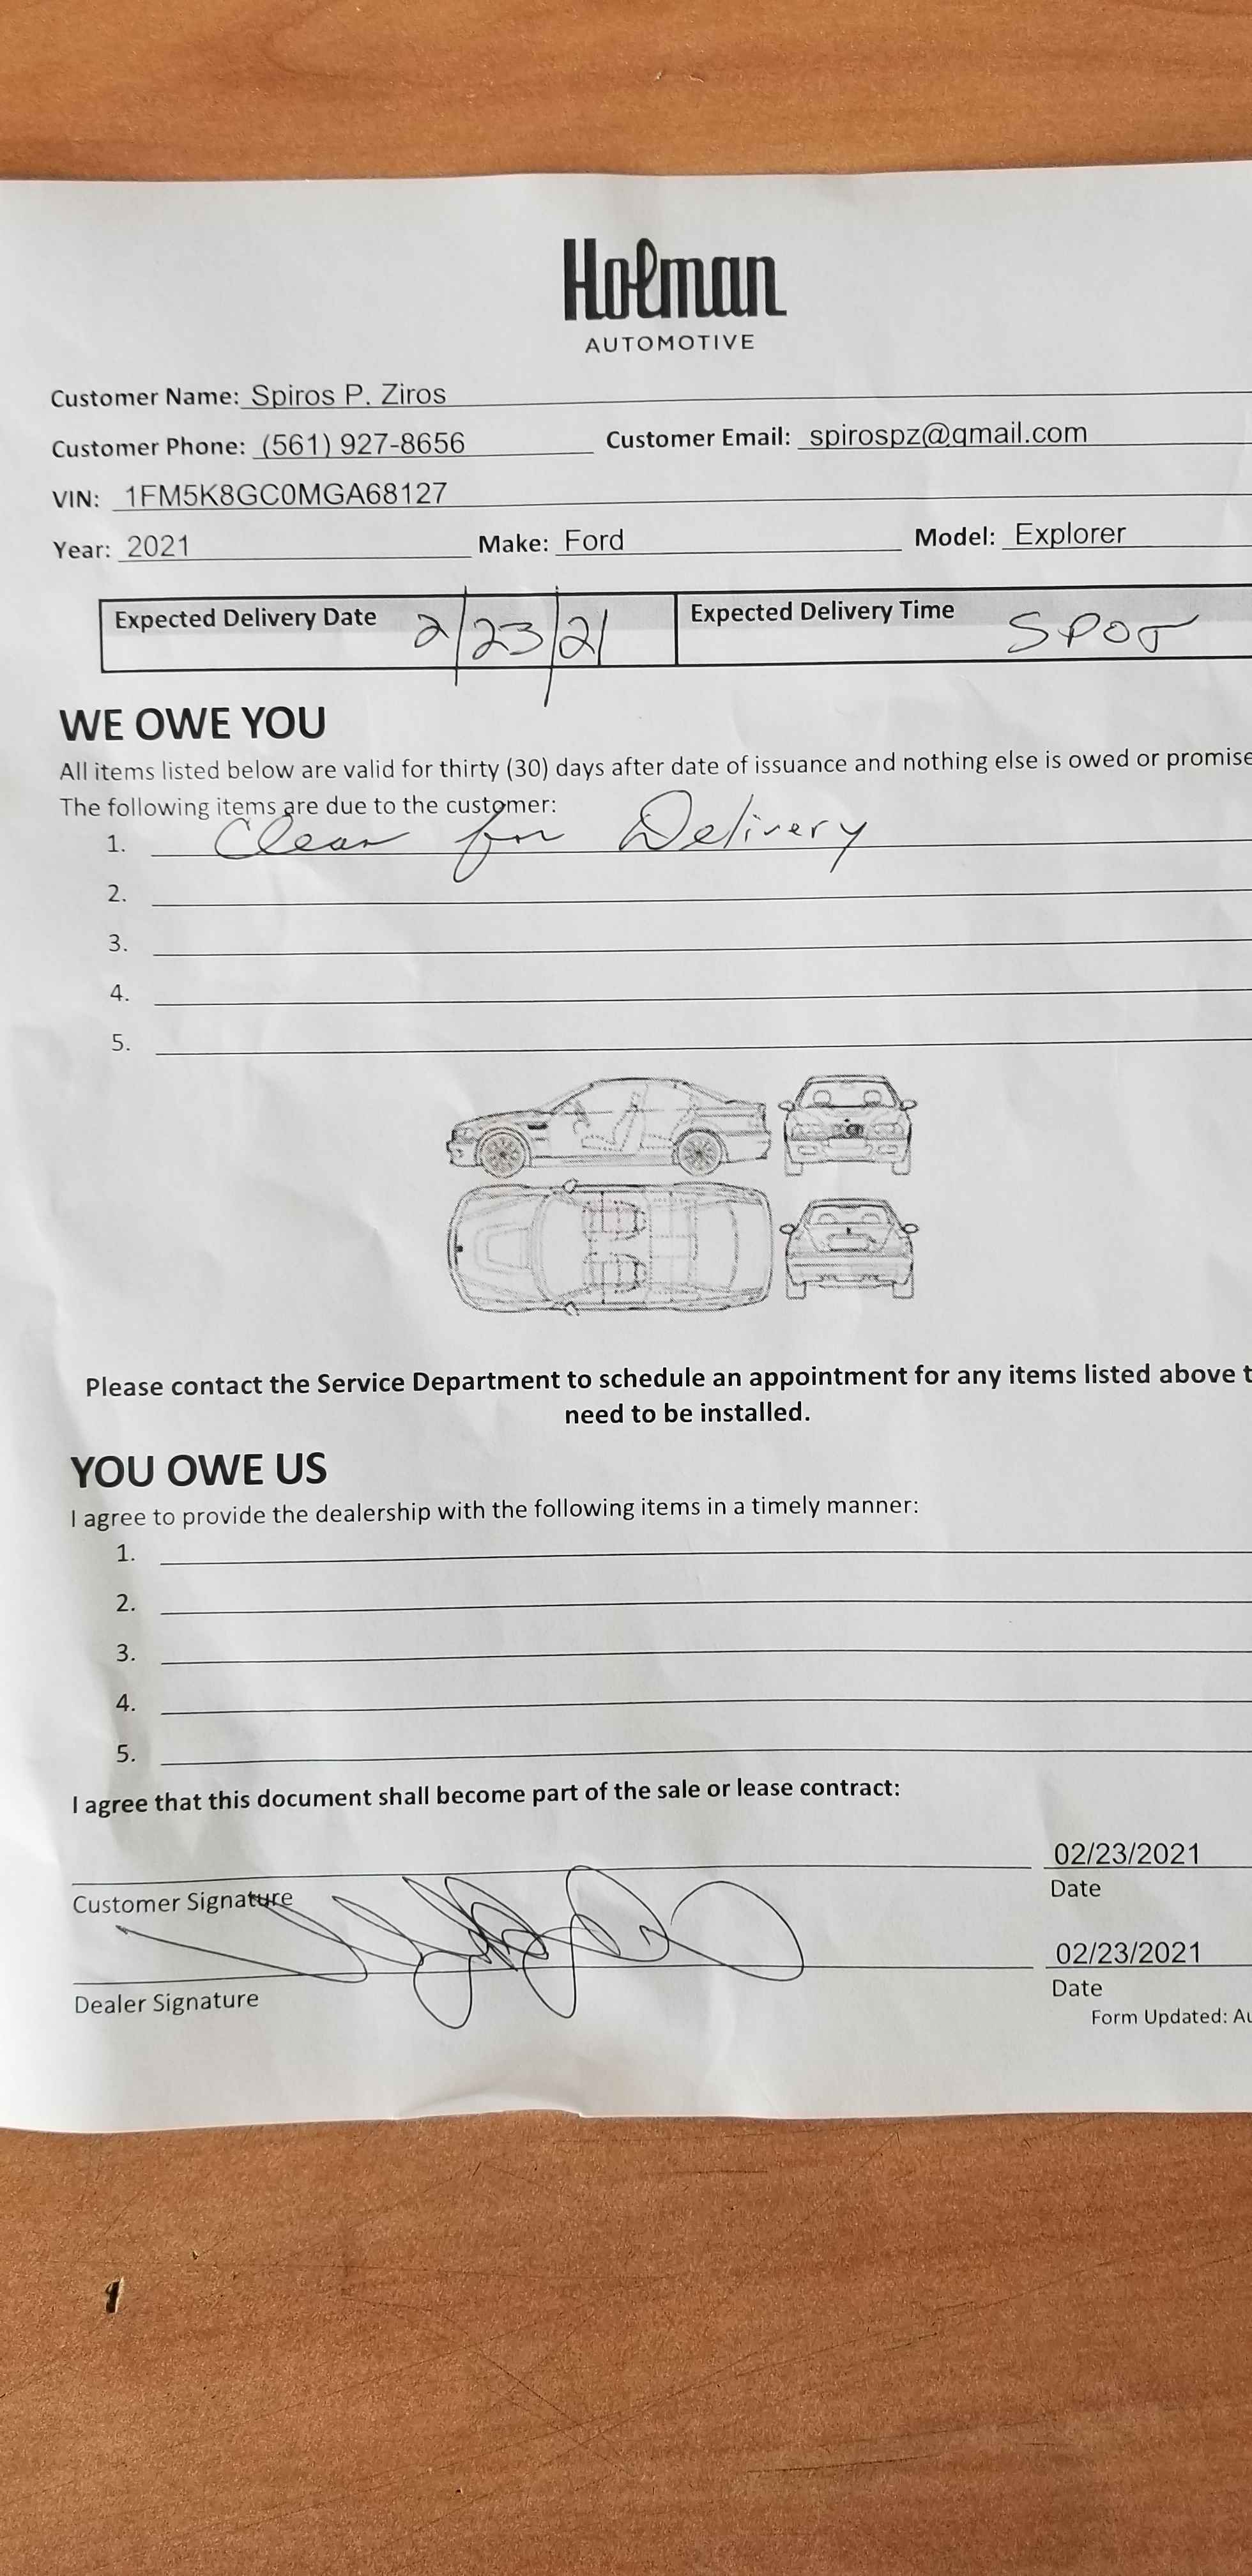 Holman
AUTOMOTIVE
Customer Name: Spiros P. Ziros
Customer Phone: (561) 927-8656 Customer Email: spirospz@gmail.com
VIN: 1FM5K8GC0MGA68127
Year: 2021 Make: Ford Model: Explorer
Expected Delivery Date 2/23/21 Expected Delivery Time SPOT
WE OWE YOU
All items listed below are valid for thirty (30) days after date of issuance and nothing else is owed or promise
The following items are due to the customer:
1. Clean for Delivery
2.
3.
4.
5.
Please contact the Service Department to schedule an appointment for any items listed above t
need to be installed.
YOU OWE US
I agree to provide the dealership with the following items in a timely manner:
1.
2.
3.
4.
5.
I agree that this document shall become part of the sale or lease contract:
02/23/2021
Customer Signature Date
02/23/2021
Dealer Signature Date
Form Updated: Au